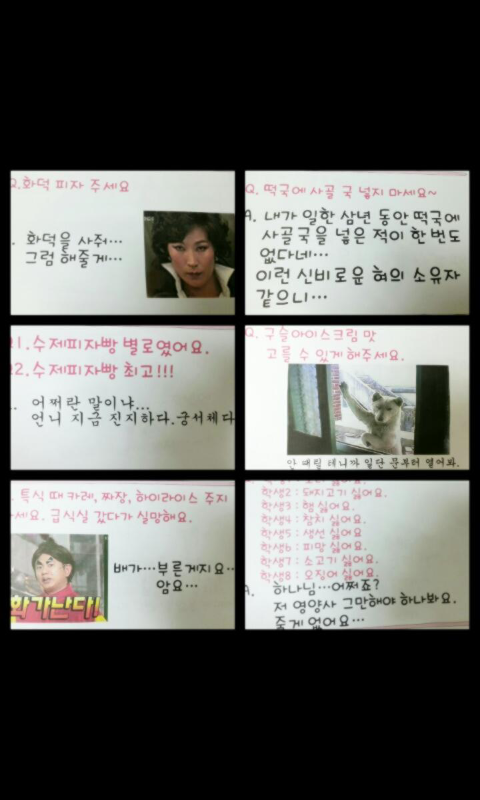 Q.화덕 피자 주세요
화덕을 사줘...
그럼 해줄게...
Q. 떡국에 사골 국 넣지 마세요~
A. 내가 일한 삼년 동안 떡국에
사골국을 넣은 적이 한 번도
없다네...
이런 신비로운 혀의 소유자
같으니...
Q1.수제피자빵 별로였어요.
Q2.수제피자빵 최고!!!
어쩌란 말이냐...
언니 지금 진지하다.궁서체다
Q. 구슬아이스크림 맛
고를 수 있게 해주세요.
안 때릴 테니까 일단 문부터 열어봐.
. 특식 때 카레, 짜장, 하이라이스 주지
세요. 급식실 갔다가 실망해요.
화가난다!
배가...부른게지요..
암요...
학생2 : 돼지고기 싫어요.
학생3 : 햄 싫어요.
학생4 : 참치 싫어요.
학생5 : 생선 싫어요
학생6 : 피망 싫어요.
학생7 : 소고기 싫어요.
학생8 : 오징어 싫어요.
A. 하나님...어쩌죠?
저 영양사 그만해야 하나봐요.
줄게 없어요...